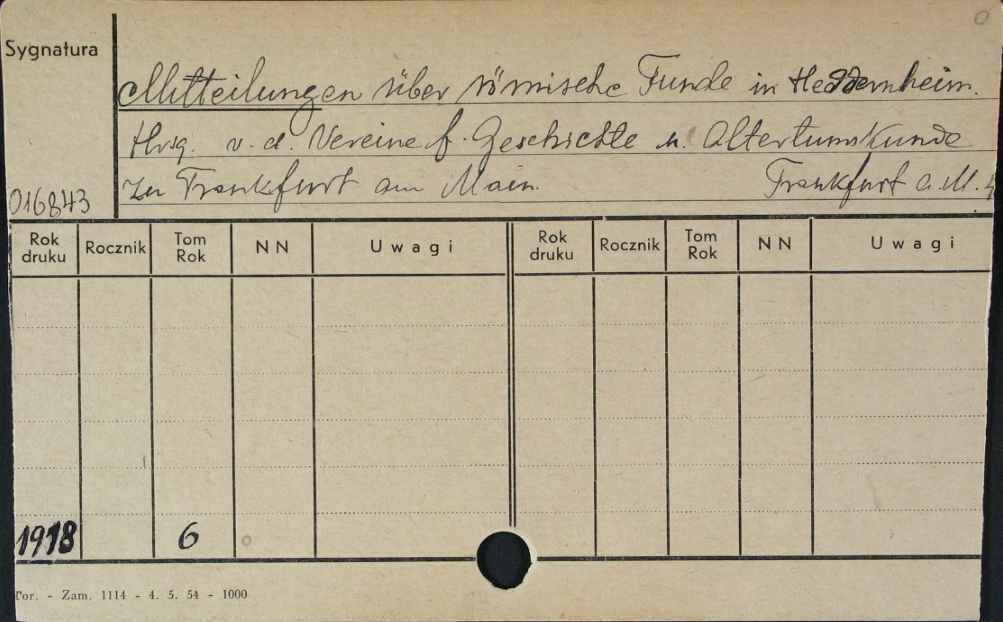 Sygnatura
Mitteilungen über römische Funde in Heddernheim.
Hrsg. v. d. Vereine f. Geschichte u. Altertumskunde
016843 zu Frankfurt am Main. Frankfurt a. M. 4
Rok druku Rocznik Tom Rok NN Uwagi Rok druku Rocznik Tom Rok NN Uwagi
1918 6
Tor. - Zam. 1114 - 4. 5. 54 - 1000